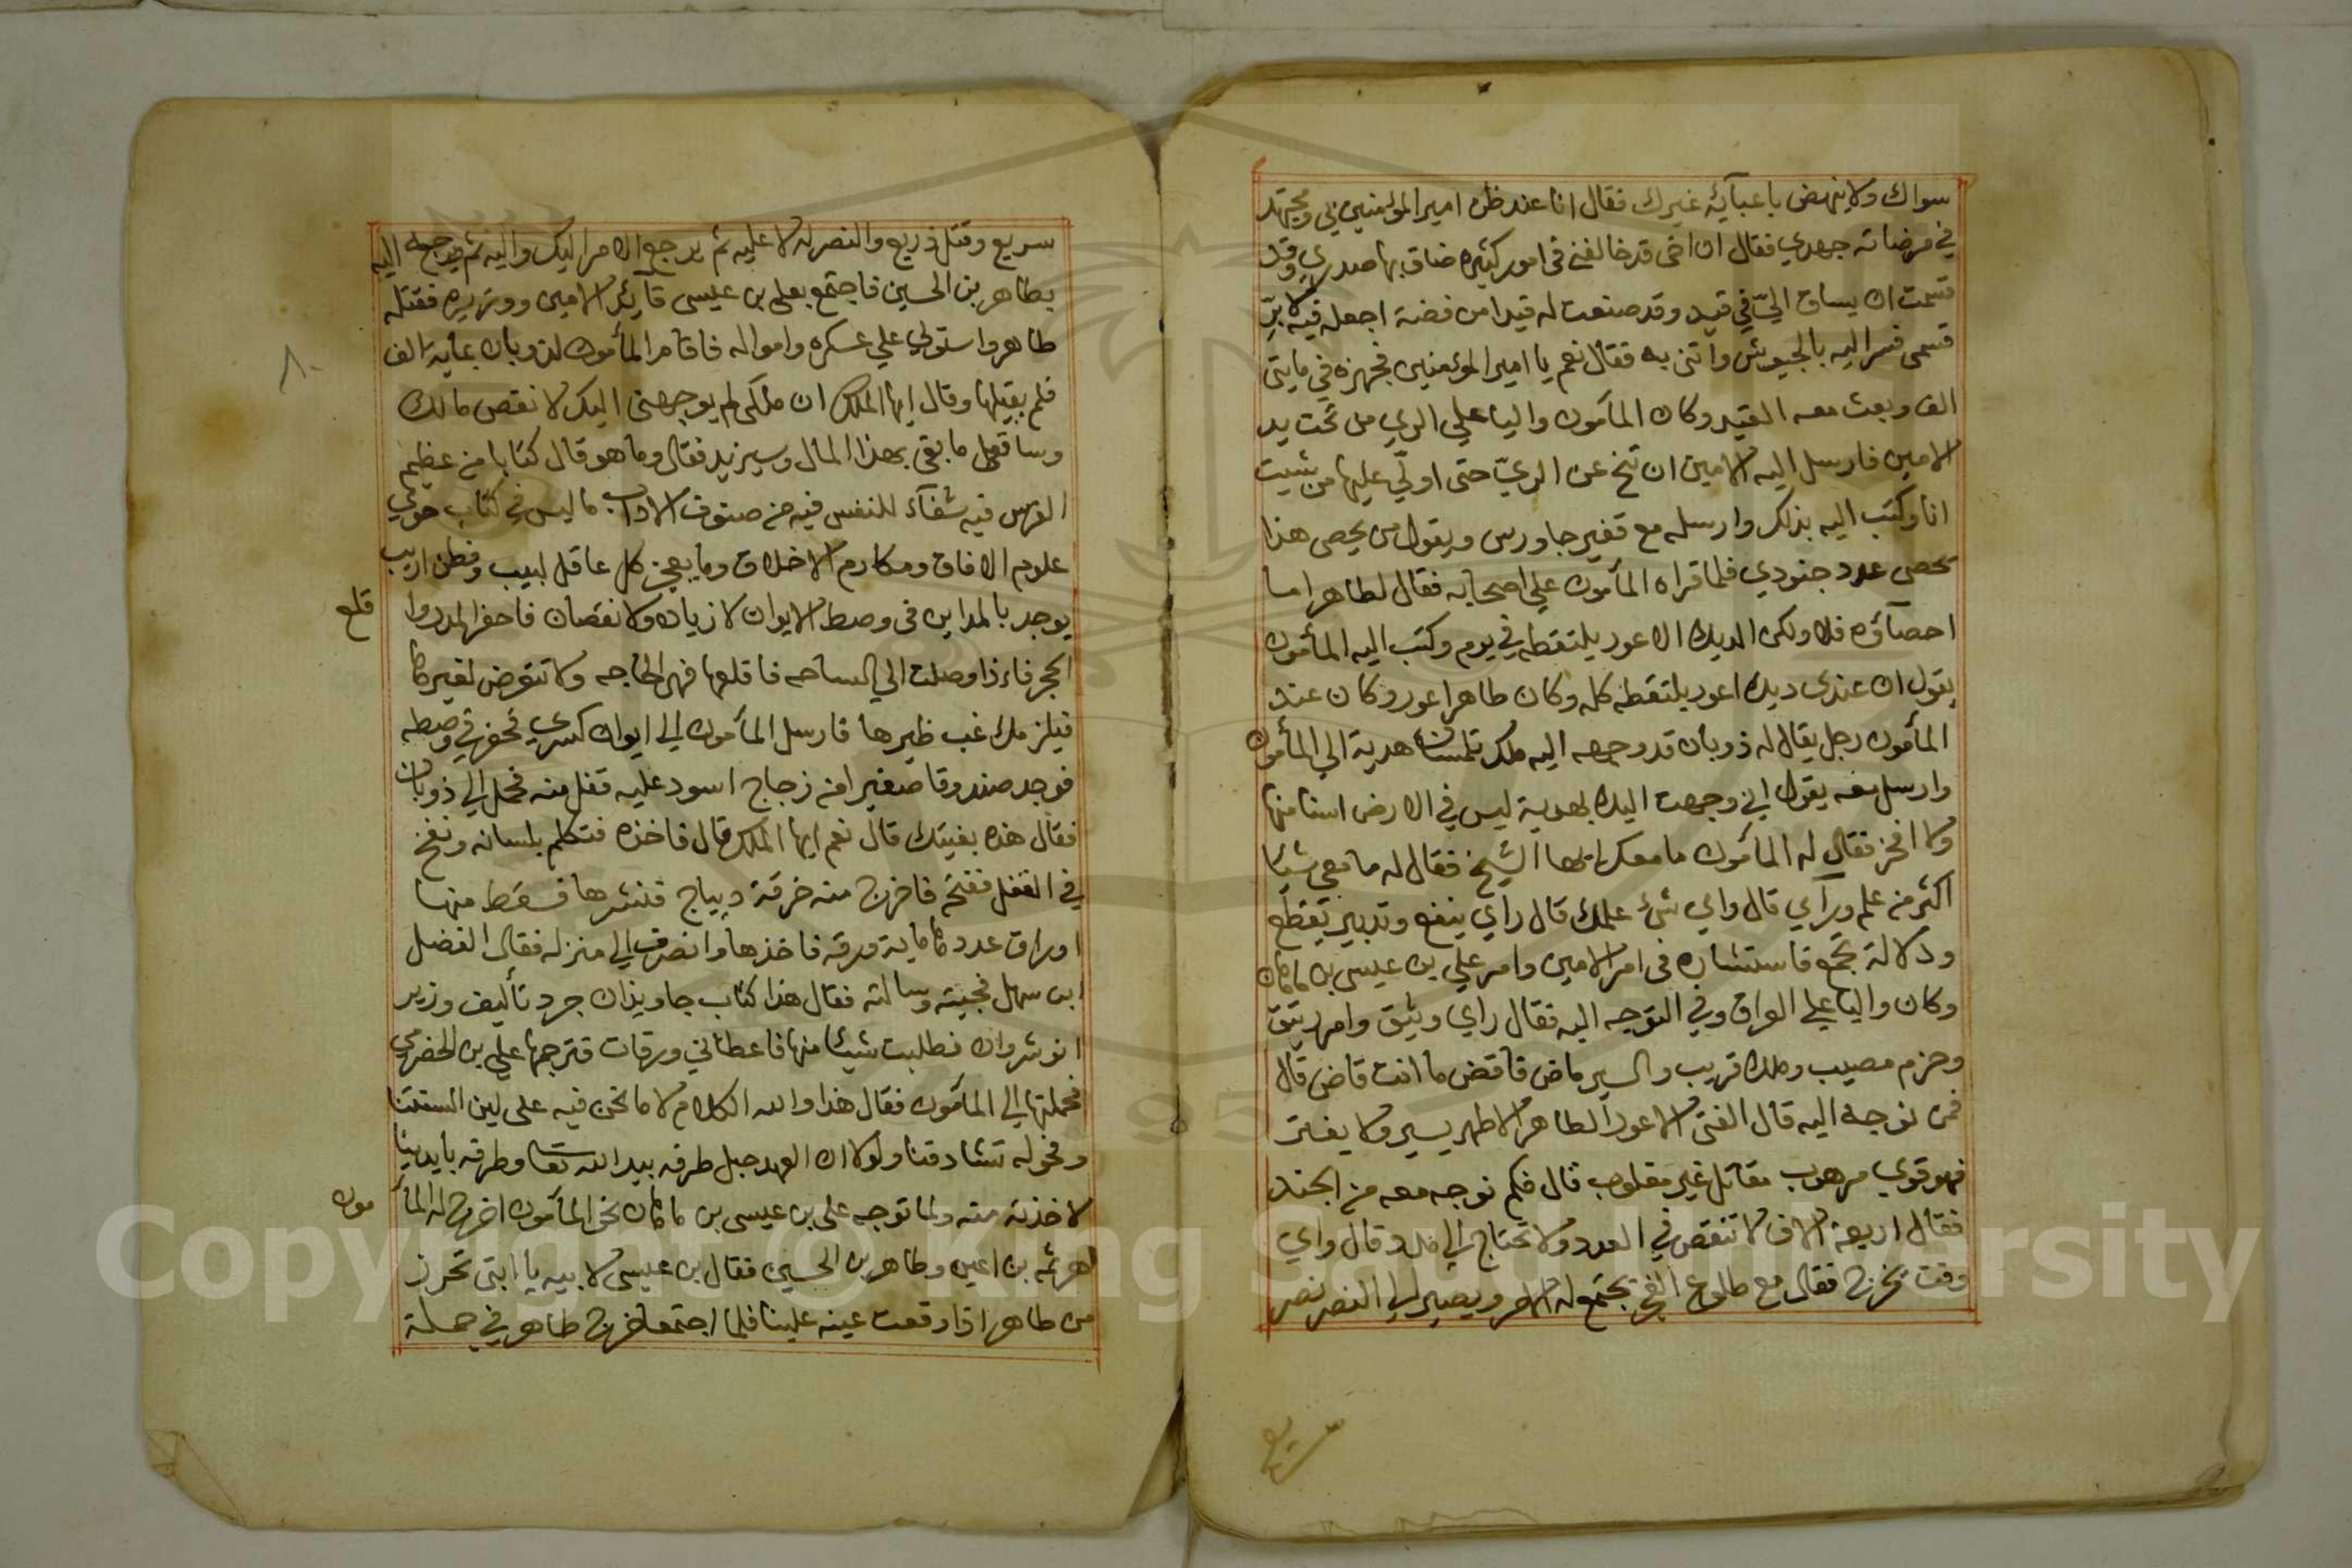 سواك ولا ينهض باعبآئه غيرك فقال انا عند ظن امير المؤمنين بي ومجتهد
في مرضاته جهدي فقال ان اخى قد خالفنى فى امور كثيره ضاق بها صدري وقد
قسمت ان يساق اليّ في قيد وقد صنعت له قيدا من فضة اجعله فيه لابرّ
قسمى فسر اليه بالجيوش وأتنى به فقال نعم يا امير المؤمنين فجهزه في مايتى
الف وبعث معه القيد وكان المآمون واليا علي الري من تحت يد
الامين فارسل اليه الامين ان تنح عن الريّ حتى اولّي عليها من شيت
انا وكتب اليه بذلك وارسله مع قفيز جاورس ويقول من يحصى هذا
يحصى عدد جنودي فلما قراه المآمون علي اصحابه فقال لطاهر اما
احصآؤه فلا ولكن الديك الاعور يلتقطه في يوم وكتب اليه المأمون
يقول ان عندى ديك اعور يلتقطه كله وكان طاهر اعور وكان عند
المأمون رجل يقال له ذوبان قد وجهه اليه ملك تلمسان هدية الي المأمون
وارسل معه يقول اني وجهت اليك بهدية ليس في الارض اسنا منها
ولا افخر فقال له المأمون ما معك ايها الشيخ فقال له ما معي شيا
اكثر من علم ورآي قال واي شىء علمك قال راي ينفع وتدبير يقطع
ودلالة تجمع فاستشاره فى امر الامين وامر علي بن عيسى بن ماهان
وكان واليا علي العراق وفي التوجه اليه فقال راي وثيق وامر
وحزم مصيب وملك قريب والسير ماض فاقض ما انت قاض قال
فمن نوجه اليه قال الفتى الاعور الطاهر الاطهر يسير ولا يفتر
فهو قوي مرهوب مقاتل غير مغلوب قال فكم نوجه معه من الجند
فقال اربعة الاف لا تنقص في العدد ولا تحتاج الي مدد قال واي
وقت نخرج فقال مع طلوع الفجر تجتمع له الامر ويصير الي النصر نصر
سريع
سريع وقتل ذريع والنصر له لا عليه ثم يرجع الامر اليك واليه ثم يوجه اليه
بطاهر بن الحسين فاجتمع بعلي بن عيسى قآئد الامين ووزيره فقتله
طاهر واستولي علي عسكره وامواله فاقامر المأمون لذوبان بمأية الف
فلم يقبلها وقال ايها الملك ان ملكى لم يوجهنى اليك لانقص مالك
وساقعل ما بقى بهذا المال وسيزيد فقال وما هو قال كتابا من عظيم
الفرس فيه شفآء للنفس فيه من صنوف الاداب ما ليس في كتاب حوي
علوم الافاق ومكارم الاخلاق وما يعجز كل عاقل لبيب وفطن اريب
يوجد بالمداين فى وصط الايوان لا زياده ولا نقصان فاحفر المدر وا
قلع
الحجر فاءذا وصلت الي الساحه فاقلعها فهى الحاجه ولا تتعرض لغيرها
فيلزمك غب ظيرها فارسل المآمون الي ايوان كسري فحفر في وصطه
فوجد صندوقا صغيرا من زجاج اسود عليه قفل منه فحمل الي ذوبان
فقال هذه بغيتك قال نعم ايها الملك قال فاخذه فتكلم بلسانه ونفخ
في القفل ففتح فاخرج منه خرقة ديباج فنشرها فسقط منها
اوراق عددها ماية ورقه فاخذها وانصرف الي منزله فقال الفضل
ابن سهل فجيته وسالته فقال هذا كتاب جاويذان جرد تأليف وزير
انوشروان فطلبت شيئا منها فاعطاني ورقات فترجمها علي بن الحضرمي
فحملتها الي المآمون فقال هذا والله الكلام لا ما نحن فيه على لين السنتنا
وفحولة تشادقنا ولولا ان العهد حبل طرفه بيد الله تعا وطرفه بايدينا
لاخذته منه ولما توجه على بن عيسى بن ماهان نحو المآمون اخرج له المأ
مون
لهرثمه بن اعين وطاهر بن الحسين فقال بن عيسى لابيه يا ابتى تحرز
من طاهر اذا وقعت عينه علينا فلما اجتمعا خرج طاهر في جملة
٨٠
Copyright © King Saud University